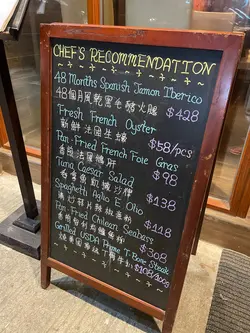 CHEF'S RECOMMENDATION
48 Months Spanish Jamon Iberico
48個月風乾黑毛豬火腿 $428
Fresh French Oyster
新鮮法國生蠔 $58/pcs
Pan-Fried French Foie Gras
香煎法國鴨肝 $98
Tuna Caesar Salad
吞拿魚凱撒沙律 $138
Spaghetti Aglio E Olio
意大利粉 $118
Pan Fried Chilean Seabass
香煎智利 $248
Grilled USDA Prime T-Bone Steak
$108/100g